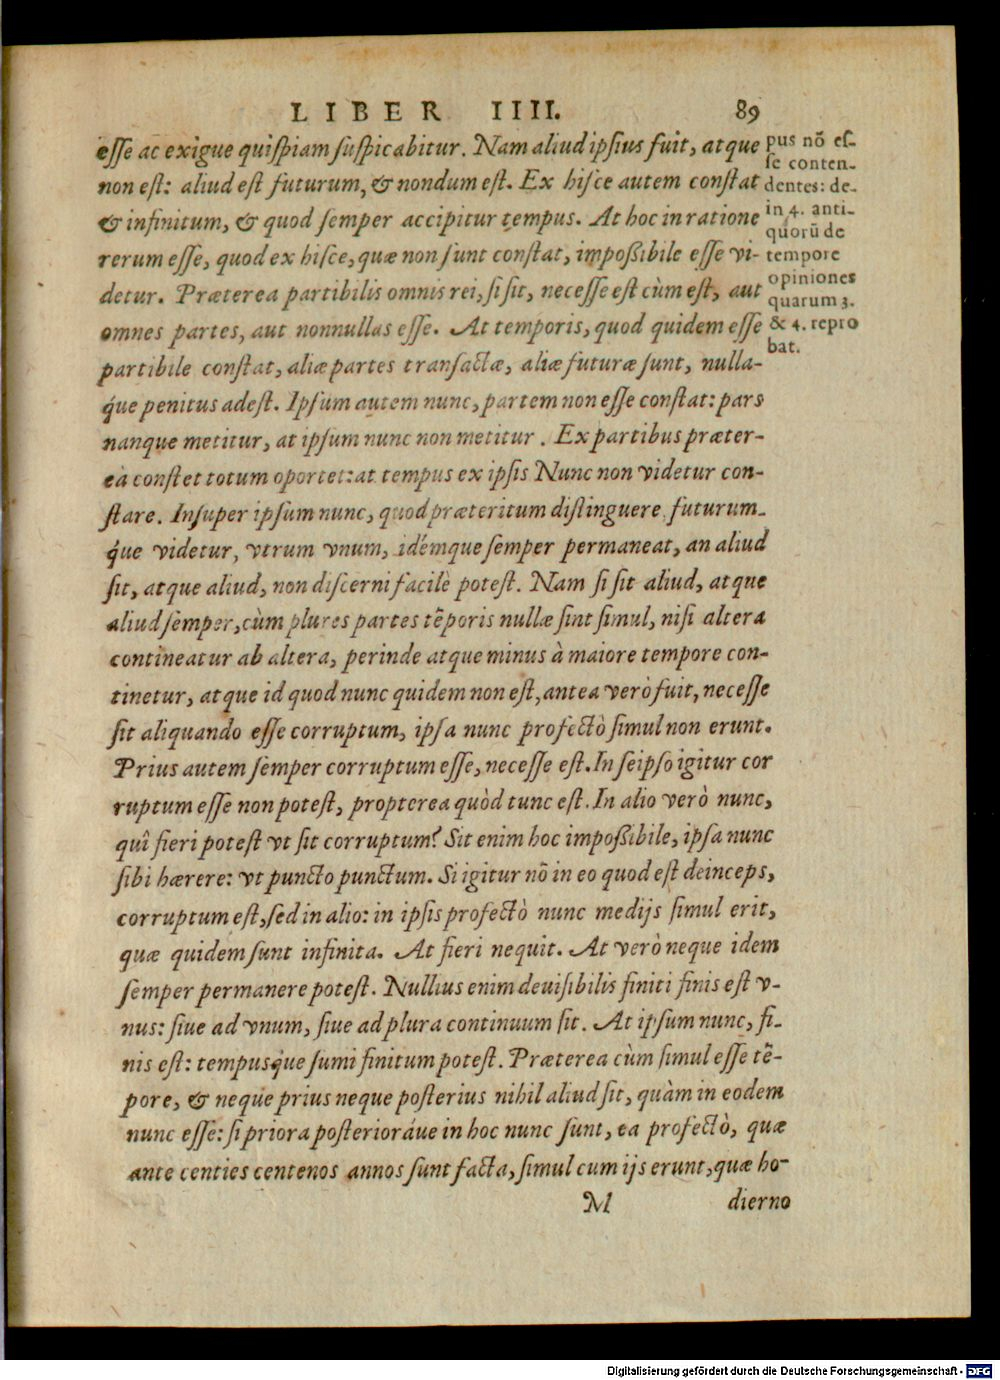 LIBER IIII. 89
esse ac exigue quispiam suspicabitur. Nam aliud ipsius fuit, atque
non est: aliud est futurum, & nondum est. Ex hisce autem constat
& infinitum, & quod semper accipitur tempus. At hoc in ratione
rerum esse, quod ex hisce, quæ non sunt constat, impoßibile esse vi-
detur. Præterea partibilis omnis rei, si sit, necesse est cùm est, aut
omnes partes, aut nonnullas esse. At temporis, quod quidem esse
partibile constat, aliæ partes transactæ, aliæ futuræ sunt, nulla-
q́ue penitus adest. Ipsum autem nunc, partem non esse constat: pars
nanque metitur, at ipsum nunc non metitur. Ex partibus præter-
eà constet totum oportet: at tempus ex ipsis Nunc non videtur con-
stare. Insuper ipsum nunc, quod præteritum distinguere futurum-
q́ue videtur, vtrum vnum, idémque semper permaneat, an aliud
sit, atque aliud, non discerni facilè potest. Nam si sit aliud, atque
aliud semper, cùm plures partes tẽporis nullæ sint simul, nisi altera
contineatur ab altera, perinde atque minus à maiore tempore con-
tinetur, atque id quod nunc quidem non est, antea verò fuit, necesse
sit aliquando esse corruptum, ipsa nunc profectò simul non erunt.
Prius autem semper corruptum esse, necesse est. In seipso igitur cor
ruptum esse non potest, propterea quòd tunc est. In alio verò nunc,
quî fieri potest vt sit corruptum? Sit enim hoc impoßibile, ipsa nunc
sibi hærere: vt puncto punctum. Si igitur nõ in eo quod est deinceps,
corruptum est, sed in alio: in ipsis profectò nunc medijs simul erit,
quæ quidem sunt infinita. At fieri nequit. At verò neque idem
semper permanere potest. Nullius enim deuisibilis finiti finis est v-
nus: siue ad vnum, siue ad plura continuum sit. At ipsum nunc, fi-
nis est: tempusq́ue sumi finitum potest. Præterea cùm simul esse tẽ-
pore, & neque prius neque posterius nihil aliud sit, quàm in eodem
nunc esse: si priora posterioráue in hoc nunc sunt, ea profectò, quæ
ante centies centenos annos sunt facta, simul cum ijs erunt, quæ ho-
M dierno
pus nõ es-
se conten-
dentes: de-
in 4. anti-
quorũ de
tempore
opiniones
quarum 3.
& 4. repro
bat.
Digitalisierung gefördert durch die Deutsche Forschungsgemeinschaft - DFG